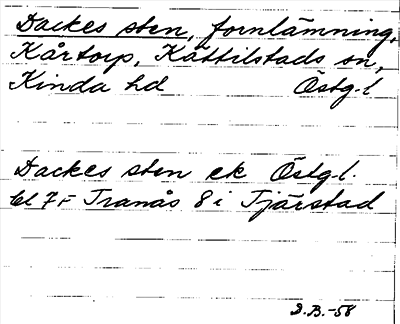 Dackes sten, fornlämning,
Kårtorp, Kättilstads sn,
Kinda hd Östg.l
Dackes sten ek Östg.l.
bl 7 F Tranås 8 i Tjärstad
D.B.-58